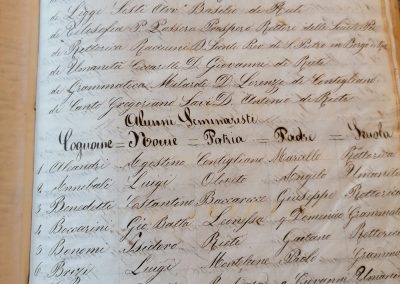 di Leggi Sesti Cav.r Basilio di Rieti
di Filosofia P. Passera Prospero Rettore delle Scuole Pie
di Rettorica Racuini D. Sante Par. di S. Pietro in Borgo
di Umanità Ceccarelli D. Giovanni di Rieti
di Grammatica Milardi D. Lorenzo di Contigliano
di Canto Gregoriano Savi D. Antonio di Rieti
Alunni Seminaristi
Cognome = Nome = Patria = Padre = Scuola
1 Agostino Contigliano Marcello Rettorica
2 Annibali Luigi Oliveto Angelo Umanità
3 Benedetti Costantino Giuseppe Rettorica
4 Boccarini Gio. Batta Leonessa q. Domenico Grammat
5 Bonomi Isidoro Rieti Gaetano Rettorica
6 Brizi Luigi Montelione Paolo Gramma
Giovanni Umani